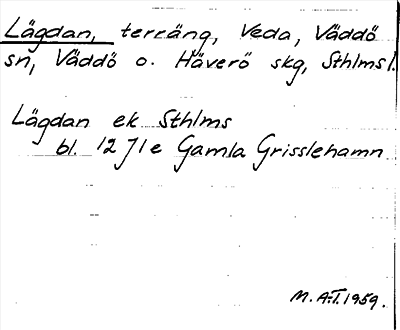 Lägdan, terräng, Veda, Väddö
sn, Väddö o. Häverö skg, Sthlms l.
Lägdan ek Sthlms
bl. 12 J1e Gamla Grisslehamn
M. A-T. 1959.